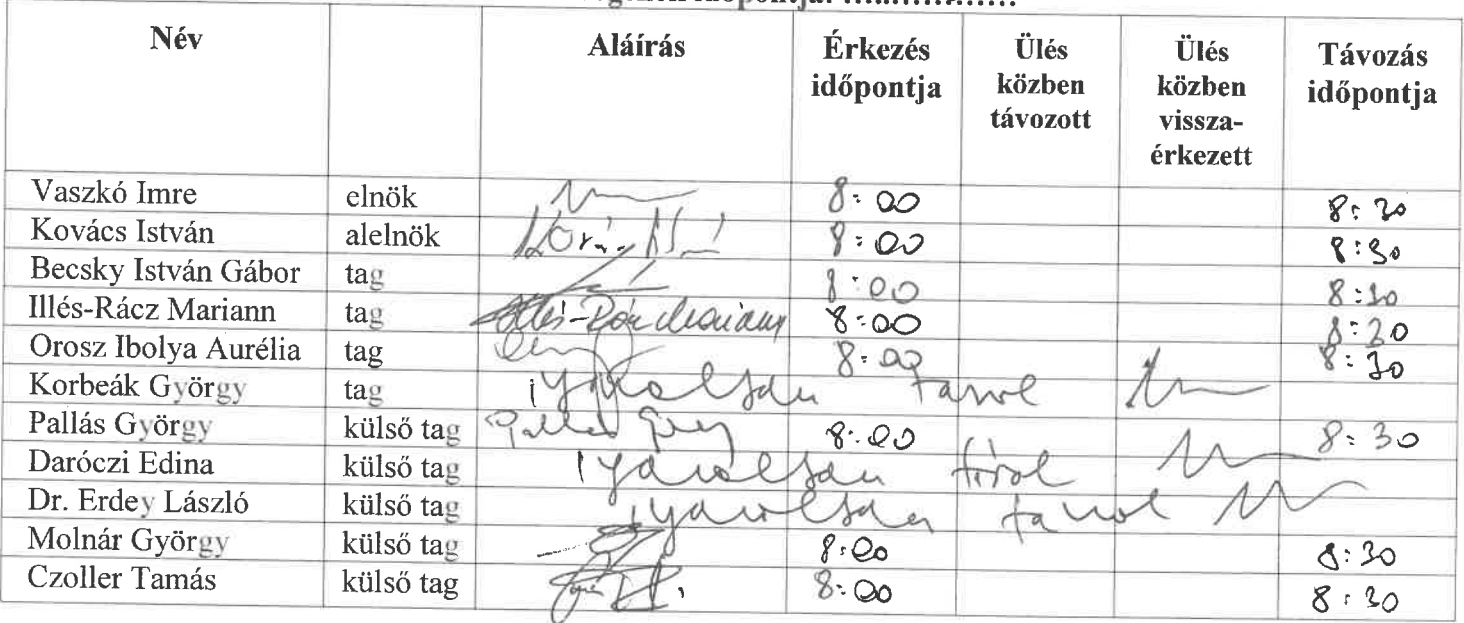 időpontja: ....................
Név Aláírás Érkezés időpontja Ülés közben távozott Ülés közben vissza-érkezett Távozás időpontja
Vaszkó Imre elnök 8:00 8:30
Kovács István alelnök 8:00 8:30
Becsky István Gábor tag 8:00 8:30
Illés-Rácz Mariann tag Illés-Rácz Mariann 8:00 8:30
Orosz Ibolya Aurélia tag 8:00 8:30
Korbeák György tag igazoltan távol
Pallás György külső tag Pallás György 8:00 8:30
Daróczi Edina külső tag igazoltan távol
Dr. Erdey László külső tag igazoltan távol
Molnár György külső tag 8:00 8:30
Czoller Tamás külső tag 8:00 8:30